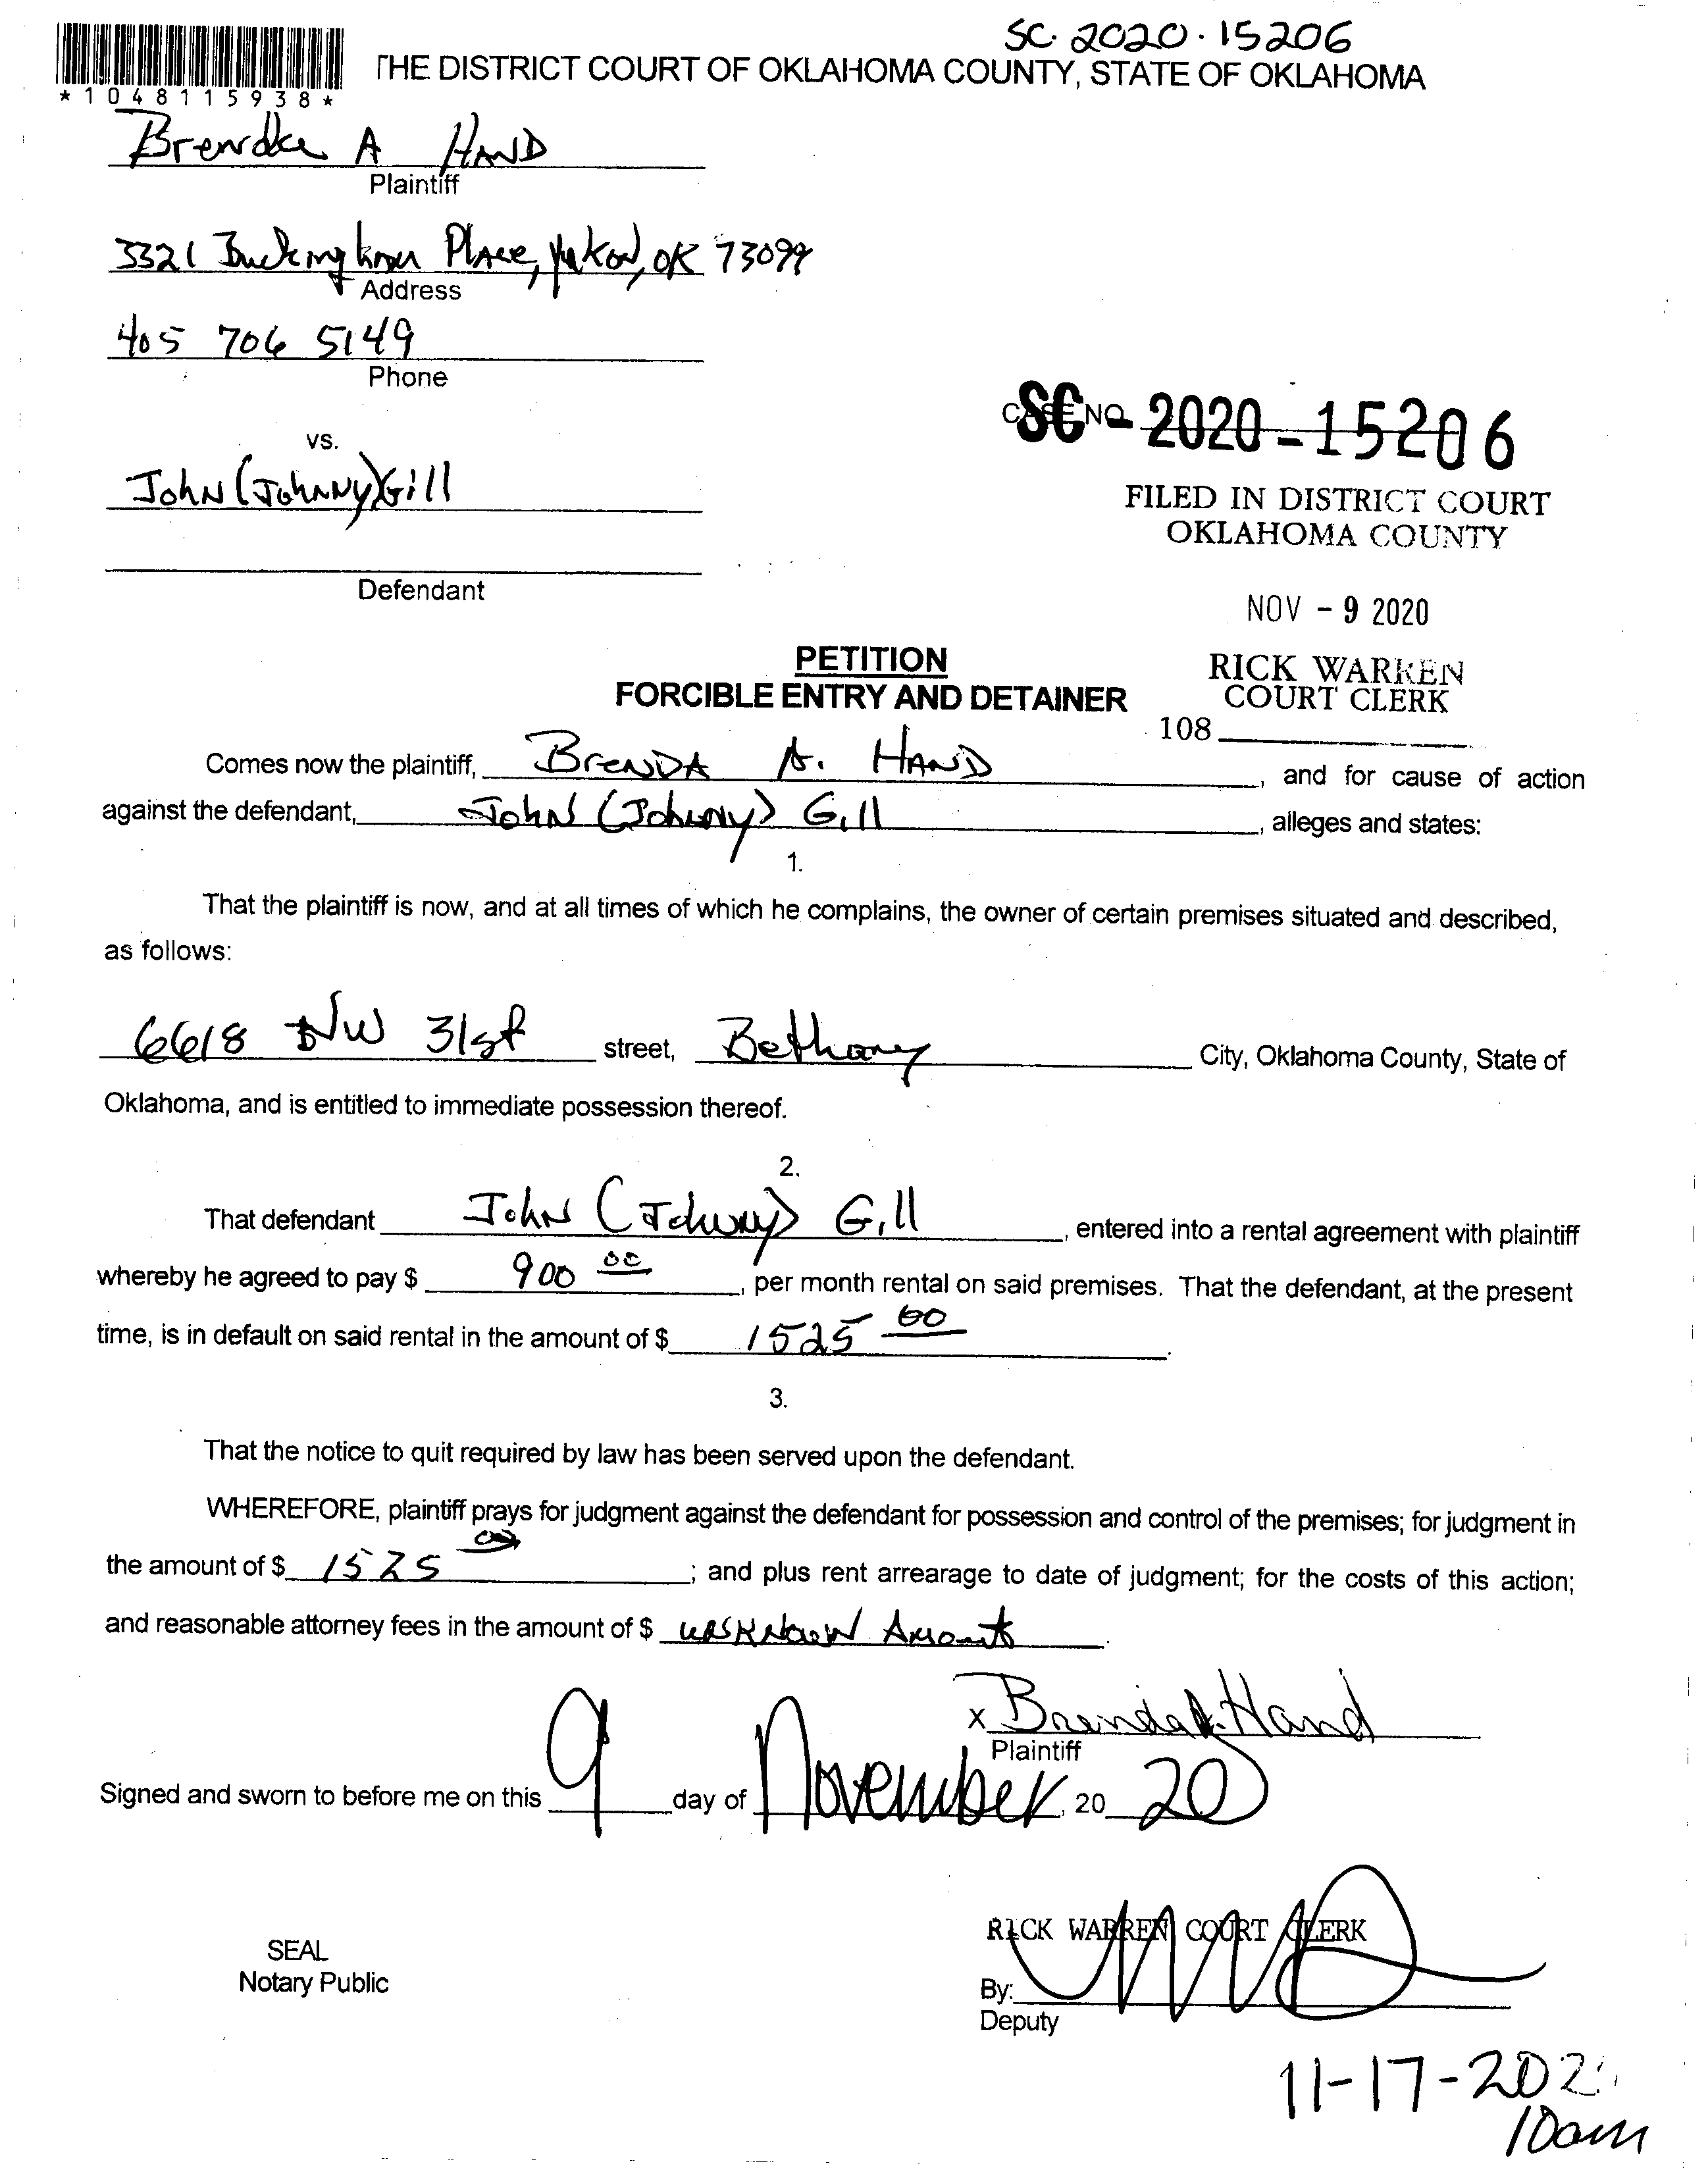 SC. 2020. 15206
THE DISTRICT COURT OF OKLAHOMA COUNTY, STATE OF OKLAHOMA
*1048115938*
Brenda A HAND
Plaintiff
3321 Buckingham Place, Yukon, OK 73099
Address
405 706 5149
Phone
CASE NO.
SC - 2020 - 15206
vs.
John (Johnny) Gill
FILED IN DISTRICT COURT
OKLAHOMA COUNTY
Defendant
NOV - 9 2020
PETITION
FORCIBLE ENTRY AND DETAINER
RICK WARREN
COURT CLERK
108
Comes now the plaintiff, BRENDA A. HAND, and for cause of action
against the defendant, John (Johnny) Gill, alleges and states:
1.
That the plaintiff is now, and at all times of which he complains, the owner of certain premises situated and described,
as follows:
6618 NW 31st street, Bethany City, Oklahoma County, State of
Oklahoma, and is entitled to immediate possession thereof.
2.
That defendant John (Johnny) Gill, entered into a rental agreement with plaintiff
whereby he agreed to pay $ 900 00, per month rental on said premises. That the defendant, at the present
time, is in default on said rental in the amount of $ 1525 00.
3.
That the notice to quit required by law has been served upon the defendant.
WHEREFORE, plaintiff prays for judgment against the defendant for possession and control of the premises; for judgment in
the amount of $ 1525 00; and plus rent arrearage to date of judgment; for the costs of this action;
and reasonable attorney fees in the amount of $ unknown Amount.
x Brenda A. Hand
Plaintiff
Signed and sworn to before me on this 9 day of November, 20 20
RICK WARREN COURT CLERK
SEAL
Notary Public
By:
Deputy
11-17-202
10am